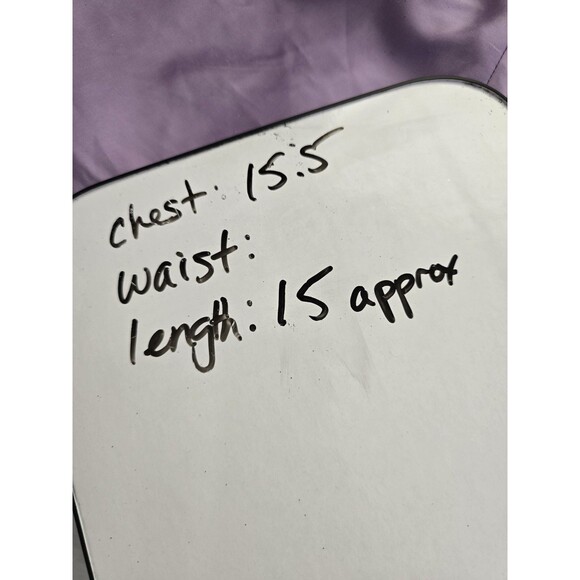 chest: 15.5
waist:
length: 15 approx